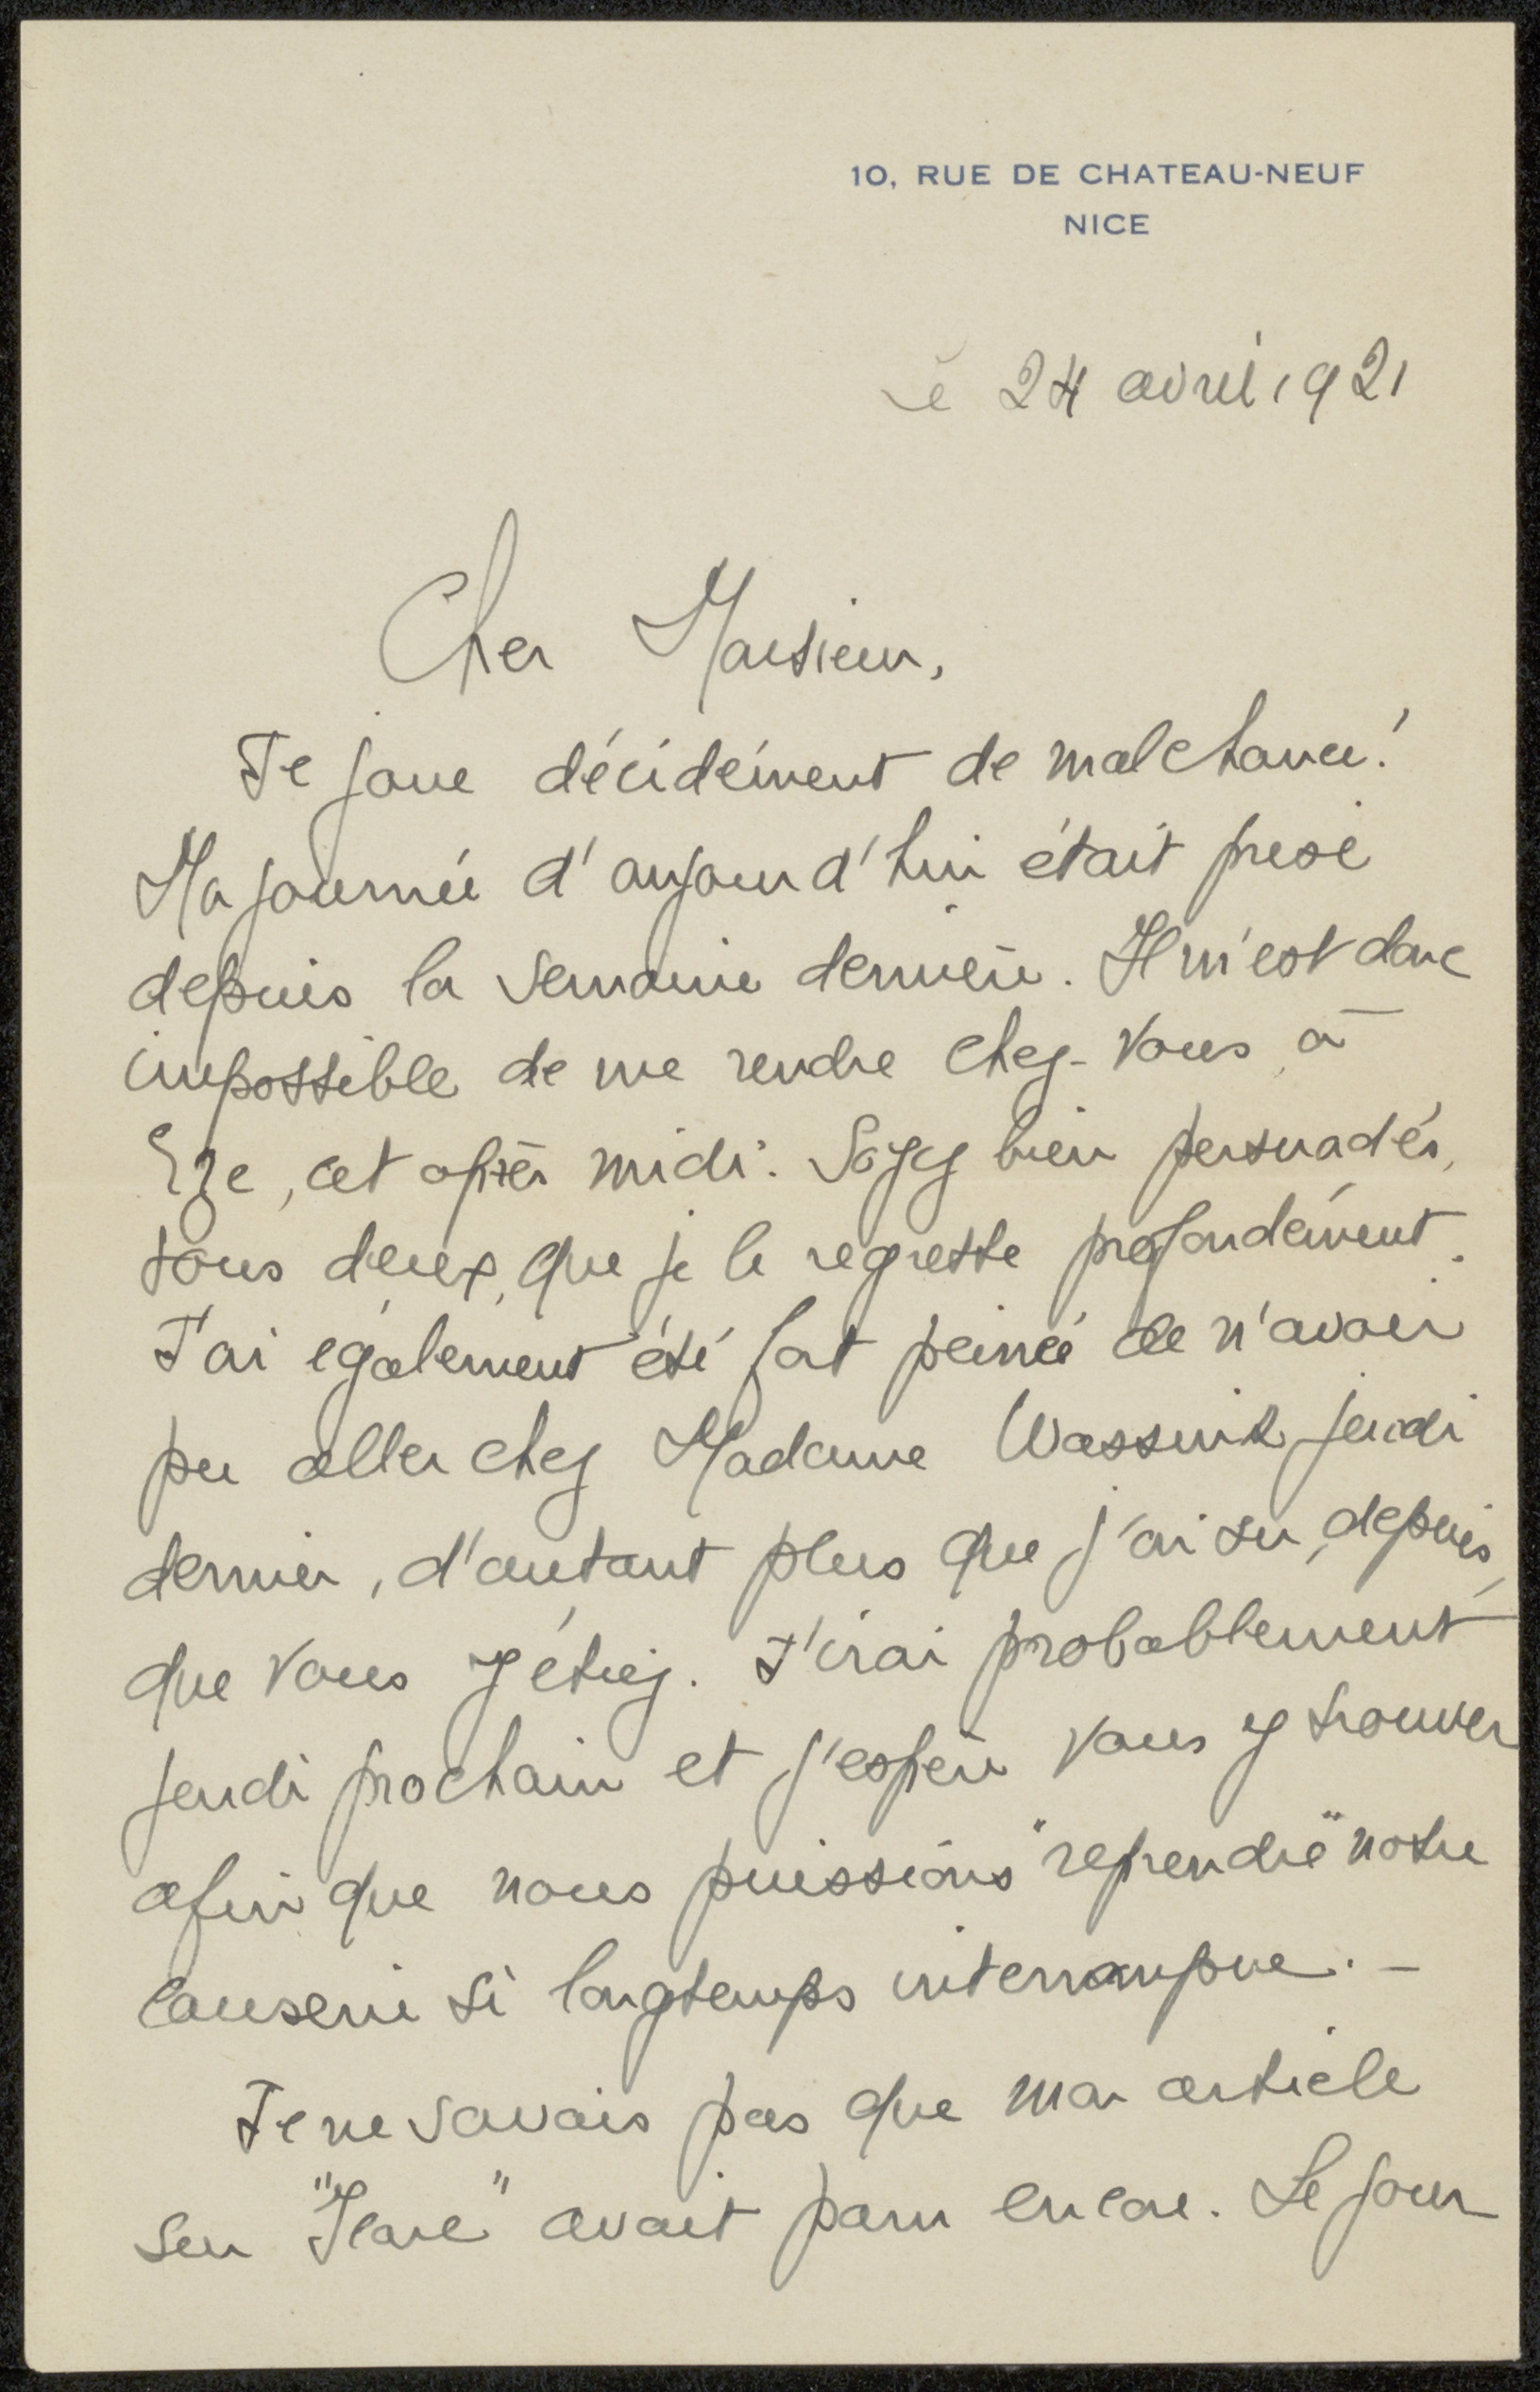 10, RUE DE CHATEAU-NEUF
NICE
Le 24 avril 1921
Cher Monsieur,
Je joue décidément de malchance!
Ma journée d'aujourd'hui était prise
depuis la semaine dernière. Il m'est donc
impossible de me rendre chez-vous, à
Eze, cet après midi. Soyez bien persuadés,
tous deux, que je le regrette profondément.
J'ai également été fort peinée de n'avoir
pu aller chez Madame Wassink jeudi
dernier, d'autant plus que j'ai su, depuis,
que vous y étiez. J'irai probablement
jeudi prochain et j'espère vous y trouver
afin que nous puissions "reprendre" notre
causerie si longtemps interrompue. -
Je ne savais pas que mon article
sur "Icare" avait paru encore. Le jour